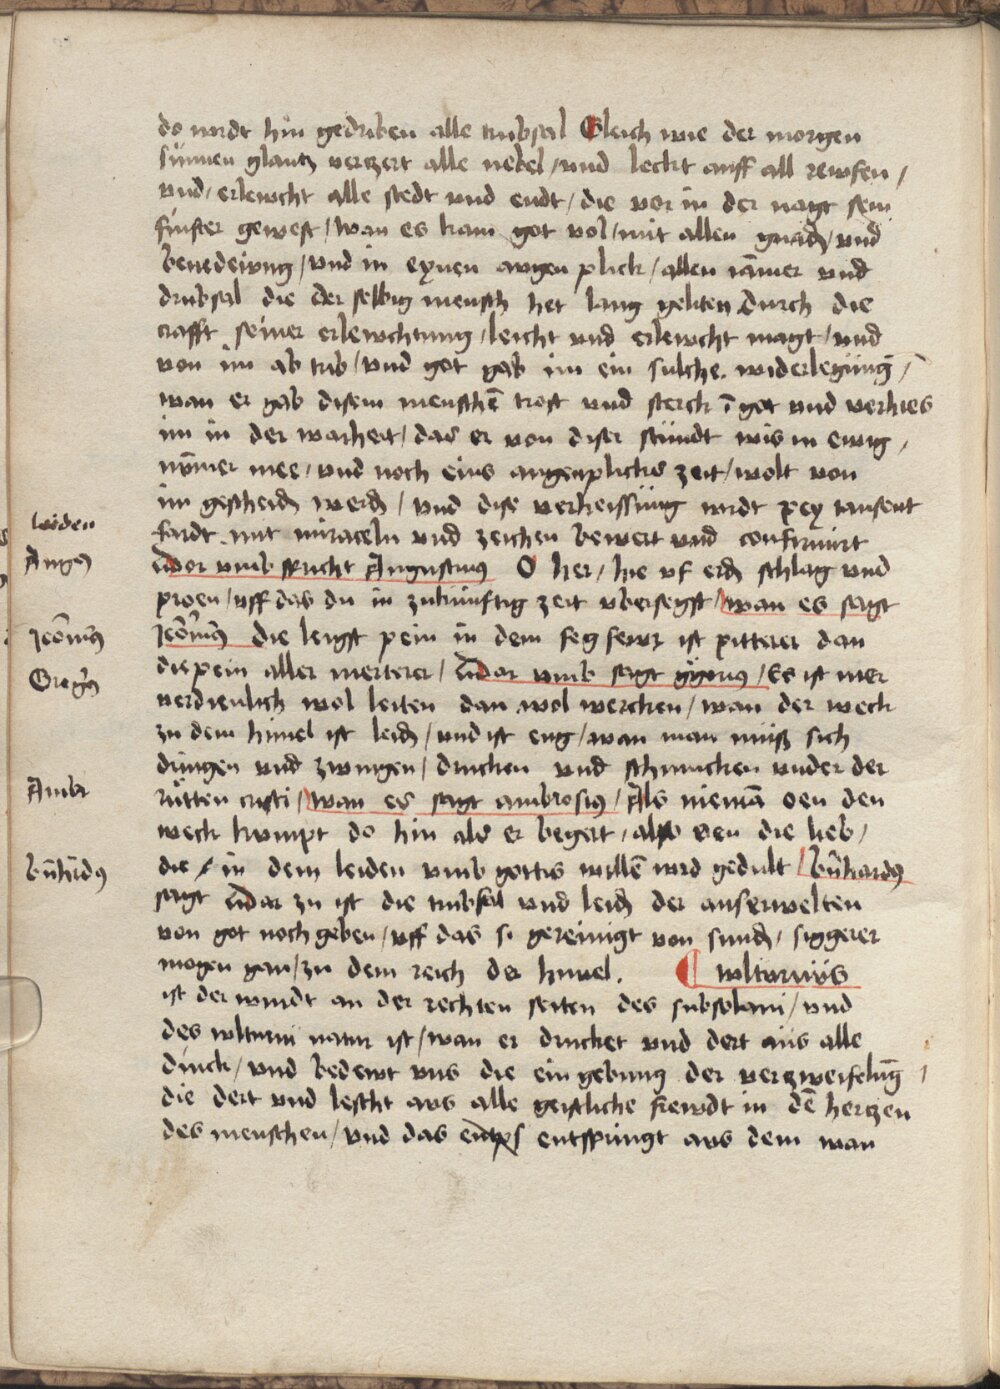 do wirdt hin gedriben alle trubsal Gleich wie der morgen
sunnen glantz verzert alle nebel / vnd leckt auff all rewfen /
vnd / erlewcht alle stedt vnd endt / die vor in der nagt sein
finster gewest / wan es kam got vol / mit allen gnadē / vnd
benedeiung / vnd in eynen augen plick / allen iāmer vnd
drubsal die der selbig mensch het lang geliten durch die
crafft seiner erlewchtung / leicht vnd erlewcht magt / vnd
von im ab trib / vnd got gab im ein sulche widerlegung /
wan er gab disem menschē trost vnd sterck ī got vnd verhies
im in der warheit / das er von diser stundt wis in ewig /
nimer mee / vnd noch eins augenplicks zeit / wolt von
im gescheidē werdē / vnd dise verheissung wirdt pey tausent
fardt mit miraceln vnd zeichen bewert vnd confirmirt
leiden
Augꝰ
Dor vmb spricht Augustinus O her / hie vf erdē schlag vnd
proen / vff das du in zukunftig zeit vbersegst / wan es sagt
Jeroīmꝰ
Jeroīmꝰ die leigst pein in dem fegfewr ist pitterer dan
Gregꝰ
die pein aller merterer / Dar vmb sagt ggorius / Es ist mer
verdienlich wol leiten dan wol wercken / wan der weck
zu dem himel ist leidē / vnd ist eng / wan man muß sich
dringen vnd zwingen / drucken vnd schmucken vnder der
Ambr
rutten cristi / wan es sagt ambrosius / Als niemā den den
weck kumpt do hin als er begert / also den die lieb /
bn̄hrdꝰ
die in dem leiden vmb gottis willē wird gedult bn̄hardꝰ
sagt Dar zu ist die trubsal vnd leidē der auserwelten
von got noch geben / vff das si gereinigt von sundē / siggerer
mogen gan / zu dem reich der himel . ¶ wlturnus
ist der windt an der rechten seiten des subsolani / vnd
des wlturni natur ist / wan er drucket vnd dert aus alle
dinck / vnd bedewt vns die eingebung der verzweifelūg
die dert vnd lescht aus alle geistliche frewdt in dē hertzen
des menschen / vnd das entspringt aus dem wan